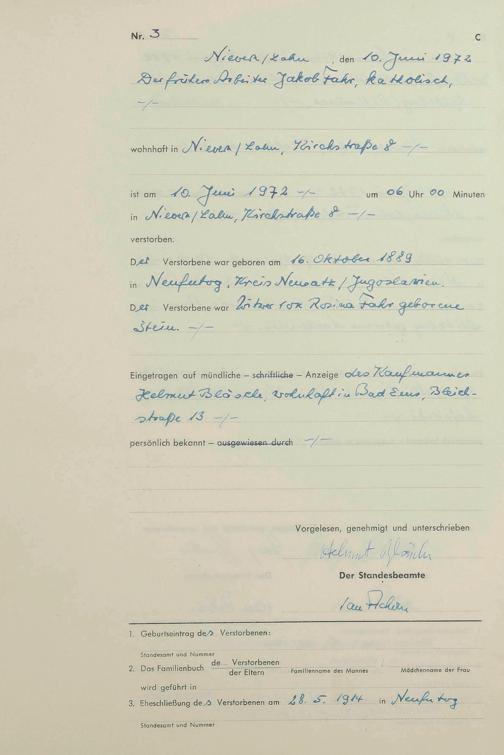 Nr. 3 C
Nievern/Lahn, den 10. Juni 1972
Der frühere Arbeiter Jakob Fahr, katholisch,
-/-
wohnhaft in Nievern/Lahn, Kirchstraße 8 -/-
ist am 10. Juni 1972 -/- um 06 Uhr 00 Minuten
in Nievern/Lahn, Kirchstraße 8 -/-
verstorben.
Der Verstorbene war geboren am 16. Oktober 1889
in Neufutog, Kreis Neusatz/Jugoslawien.
Der Verstorbene war Witwer von Rosina Fahr geborene
Stein. -/-
Eingetragen auf mündliche – schriftliche – Anzeige des Kaufmannes
Helmut Bläsche, wohnhaft in Bad Ems, Bleich-
straße 13 -/-
persönlich bekannt – ausgewiesen durch -/-
Vorgelesen, genehmigt und unterschrieben
Helmut
Der Standesbeamte
1. Geburtseintrag des Verstorbenen:
Standesamt und Nummer
2. Das Familienbuch de Verstorbenen
der Eltern Familienname des Mannes Mädchenname der Frau
wird geführt in
3. Eheschließung des Verstorbenen am 28. 5. 1914 in Neufutog
Standesamt und Nummer